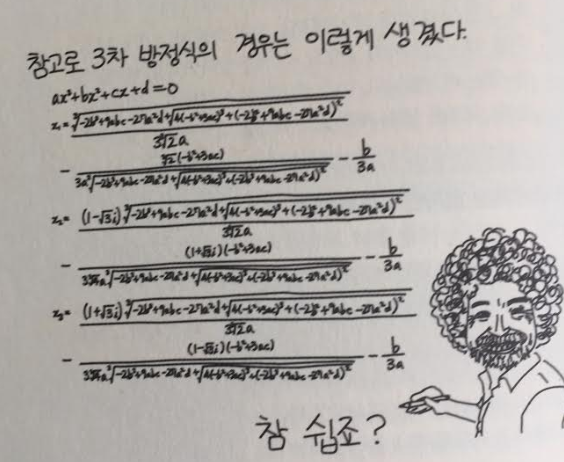 참고로 3차 방정식의 경우는 이렇게 생겼다.
ax³+bx²+cx+d=0
x₁= ∛(-2b³+9abc-27a²d+√(4(-b²+3ac)³+(-2b³+9abc-27a²d)²)) / ∛2a
- ∛2(-b²+3ac) / 3a∛(-2b³+9abc-27a²d+√(4(-b²+3ac)³+(-2b³+9abc-27a²d)²)) - b/3a
x₂= (1-√3i)∛(-2b³+9abc-27a²d+√(4(-b²+3ac)³+(-2b³+9abc-27a²d)²)) / ∛2a
- (1+√3i)(-b²+3ac) / 3∛4a∛(-2b³+9abc-27a²d+√(4(-b²+3ac)³+(-2b³+9abc-27a²d)²)) - b/3a
x₃= (1+√3i)∛(-2b³+9abc-27a²d+√(4(-b²+3ac)³+(-2b³+9abc-27a²d)²)) / ∛2a
- (1-√3i)(-b²+3ac) / 3∛4a∛(-2b³+9abc-27a²d+√(4(-b²+3ac)³+(-2b³+9abc-27a²d)²)) - b/3a
참 쉽죠?